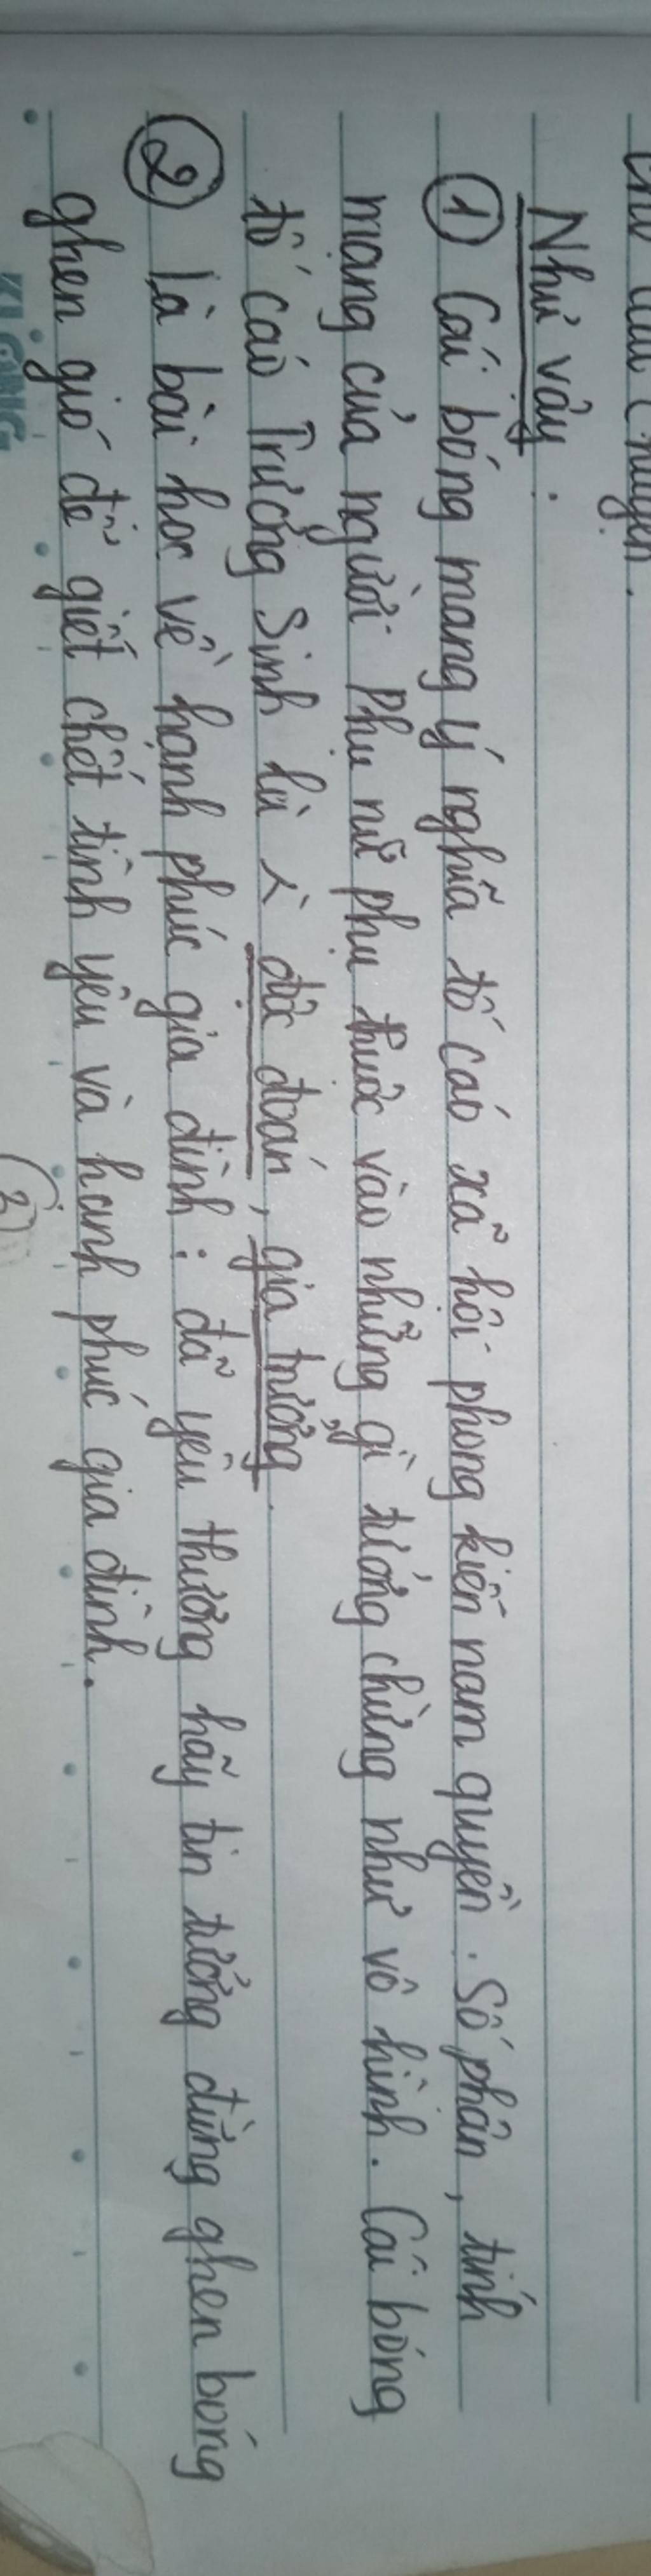 chuyện.
Như vậy:
① Cái bóng mang ý nghĩa tố cáo xã hội phong kiến nam quyền. Số phận, tính
mạng của người Phụ nữ phụ thuộc vào những gì tưởng chừng như vô hình. Cái bóng
tố cáo Trương Sinh là độc đoán, gia trưởng.
② Là bài học về hạnh phúc gia đình: đã yêu thương hãy tin tưởng đừng ghen bóng
ghen gió để giết chết tình yêu và hạnh phúc gia đình.
KLONG